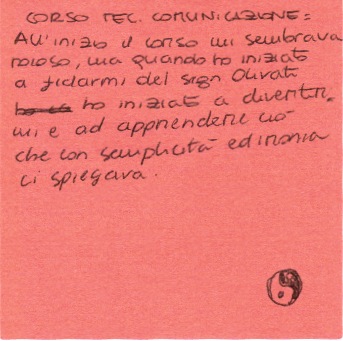 CORSO TEC. COMUNICAZIONE:
All'inizio il corso mi sembrava
noioso, ma quando ho iniziato
a fidarmi del sign Olivati
ho iniziato a divertir,
mi e ad apprendere ciò
che con semplicità ed ironia
ci spiegava.